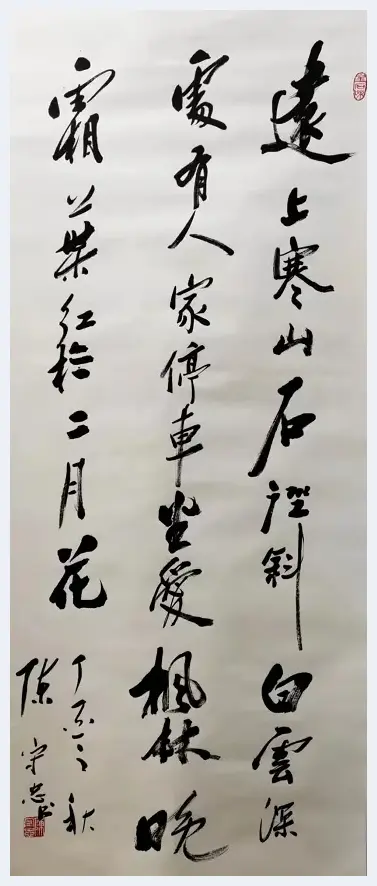 遠上寒山石徑斜白雲深
處有人家停車坐愛楓林晚
霜葉紅於二月花
丁之秋
陳守忠书